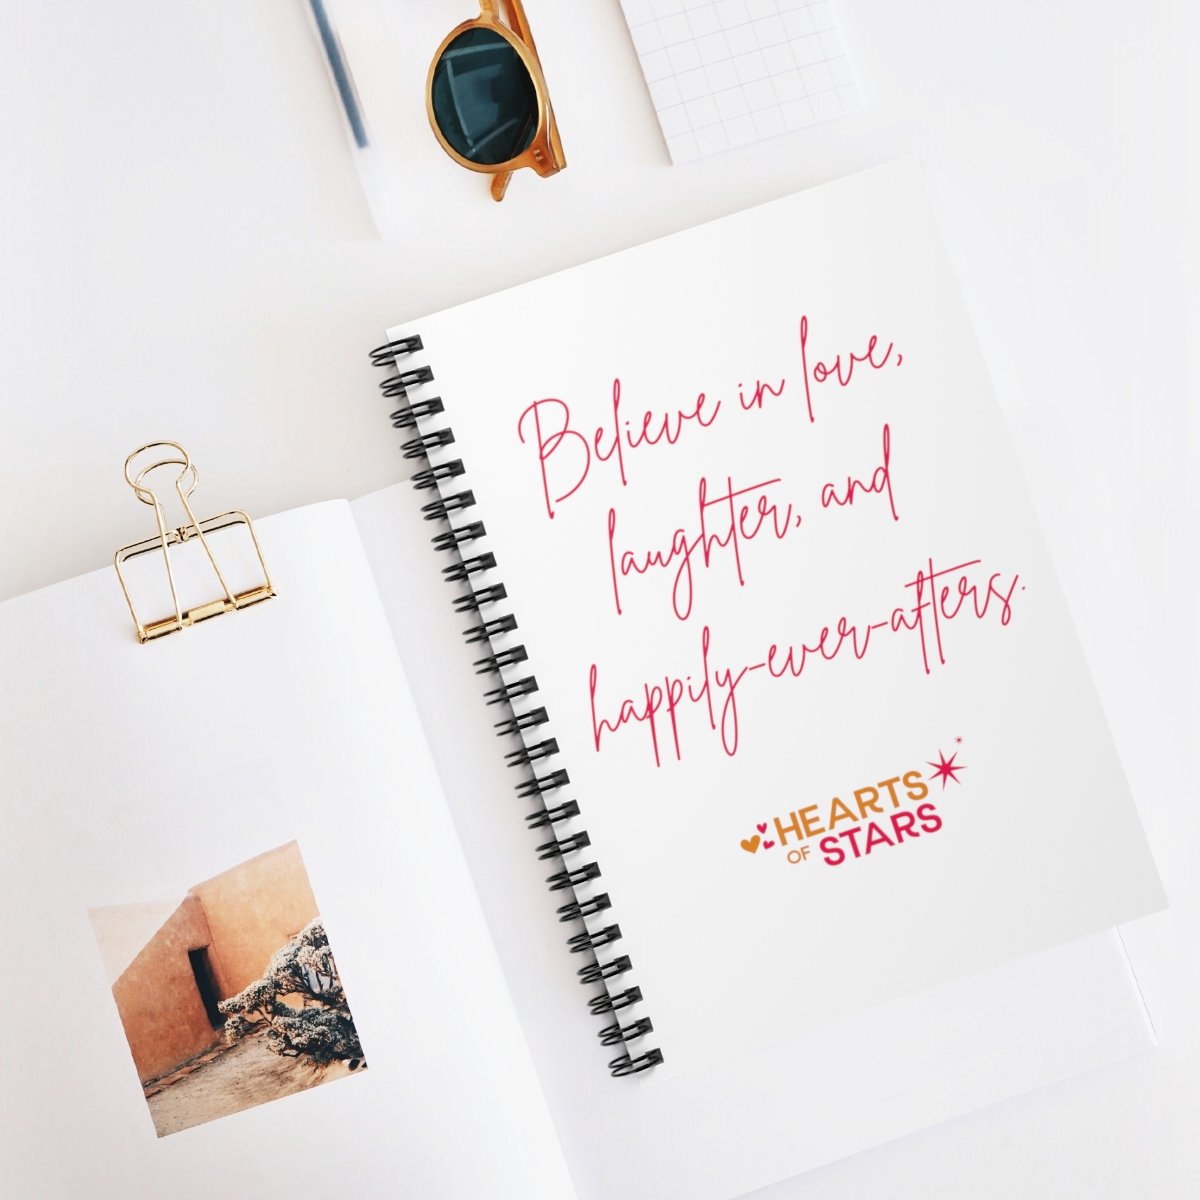 Believe in love,
laughter, and
happily-ever-afters.
HEARTS
OF STARS